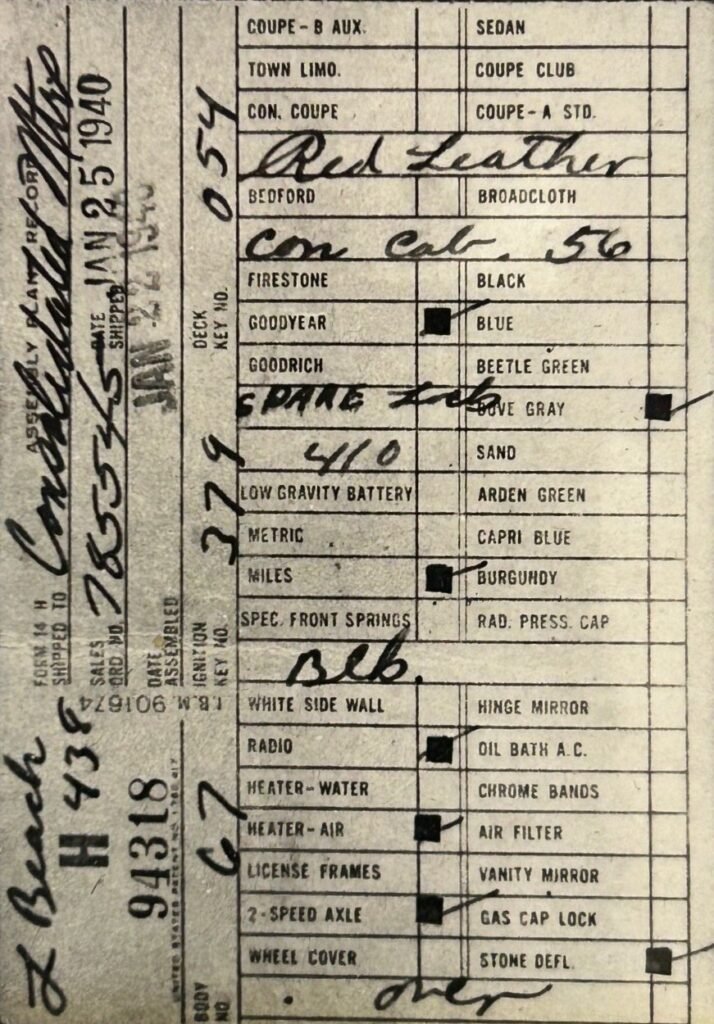 COUPE-B AUX. SEDAN
TOWN LIMO. COUPE CLUB
CON. COUPE COUPE-A STD.
Red Leather
BEDFORD BROADCLOTH
Con Cab. 56
FIRESTONE BLACK
GOODYEAR BLUE
GOODRICH BEETLE GREEN
SPARE Lock DOVE GRAY
410 SAND
LOW GRAVITY BATTERY ARDEN GREEN
METRIC CAPRI BLUE
MILES BURGUNDY
SPEC. FRONT SPRINGS RAD. PRESS. CAP
Blb.
WHITE SIDE WALL HINGE MIRROR
RADIO OIL BATH A.C.
HEATER-WATER CHROME BANDS
HEATER-AIR AIR FILTER
LICENSE FRAMES VANITY MIRROR
2-SPEED AXLE GAS CAP LOCK
WHEEL COVER STONE DEFL.
over
ASSEMBLY PLANT RECORD
FORM 14 H
SHIPPED TO Consolidated Mtrs
L Beach
SALES ORD NO. 785545 DATE SHIPPED JAN 25 1940
H 438
DATE ASSEMBLED JAN 22 1940
94318
I.B.M. 901674
UNITED STATES PATENT NO.
BODY NO 67 IGNITION KEY NO. 379 DECK KEY NO. 054